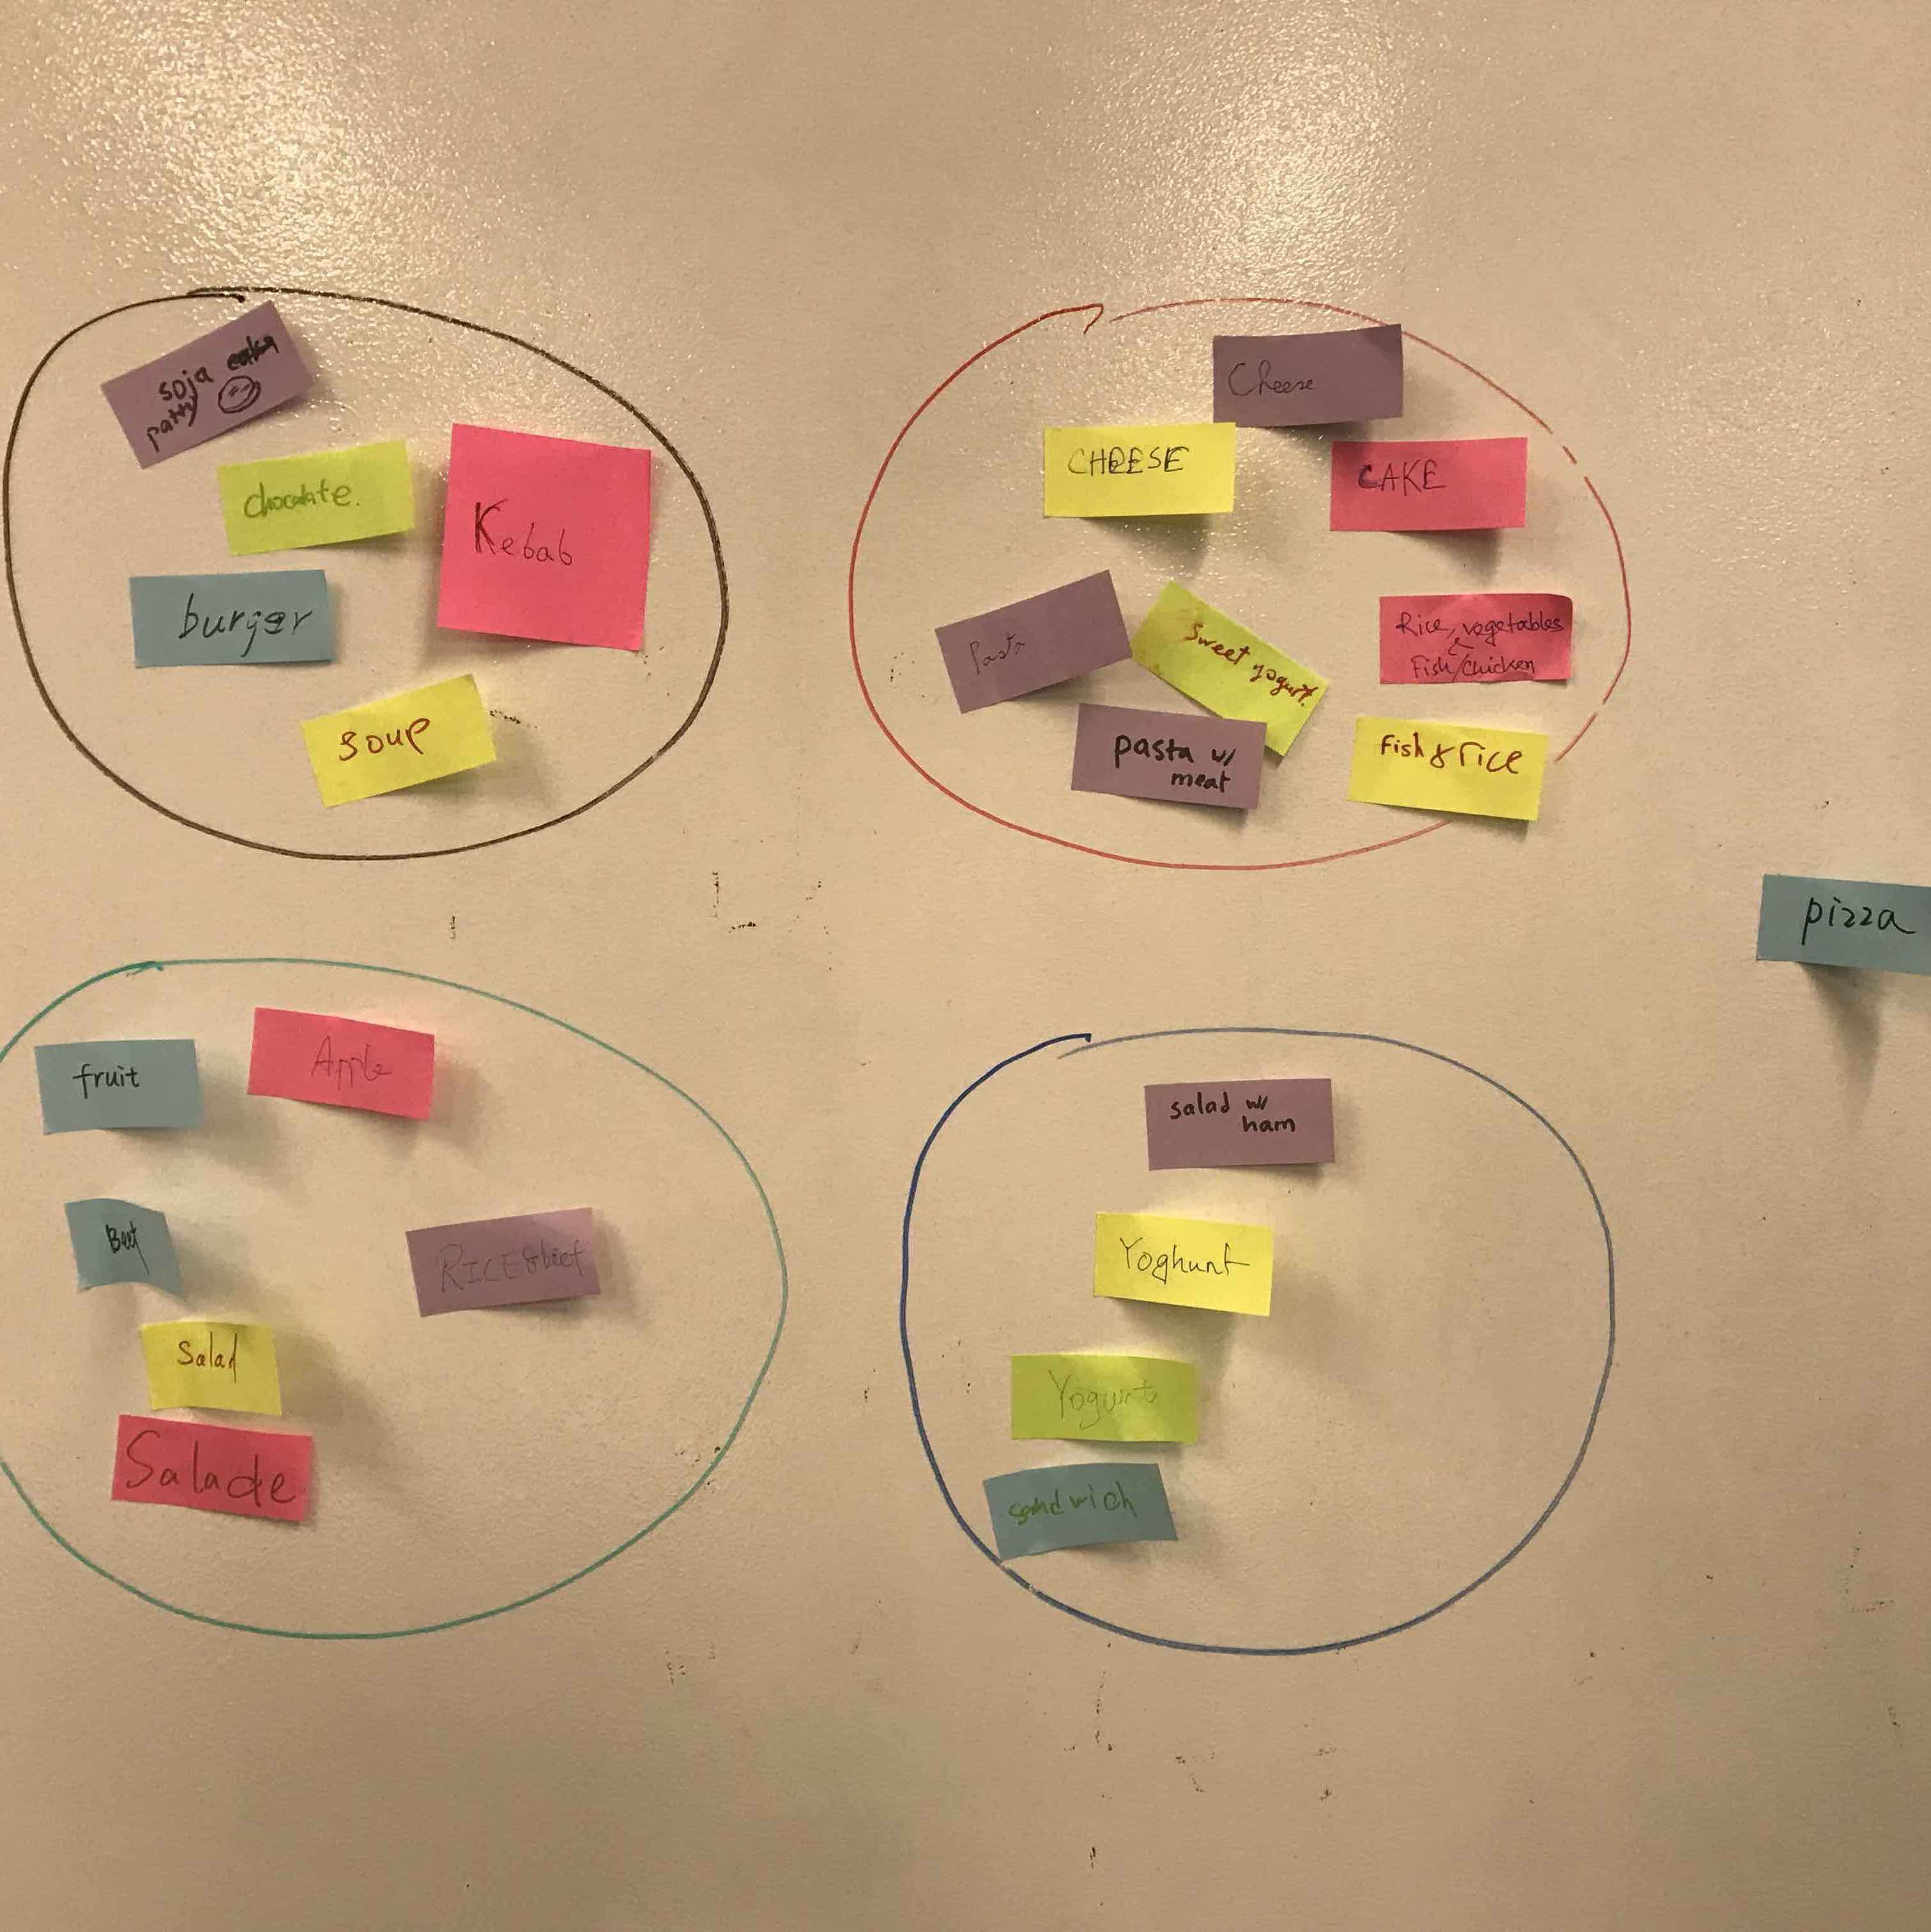 soja
patty
chocolate.
Kebab
burger
soup
Cheese
CHEESE
CAKE
Pasta
Sweet yogurt.
Rice, vegetables
Fish/Chicken
pasta w/
meat
Fish & rice
pizza
fruit
Apple
RICE & beef
Salad
Salade
salad w/
ham
Yoghurt
Yogurt
sandwich